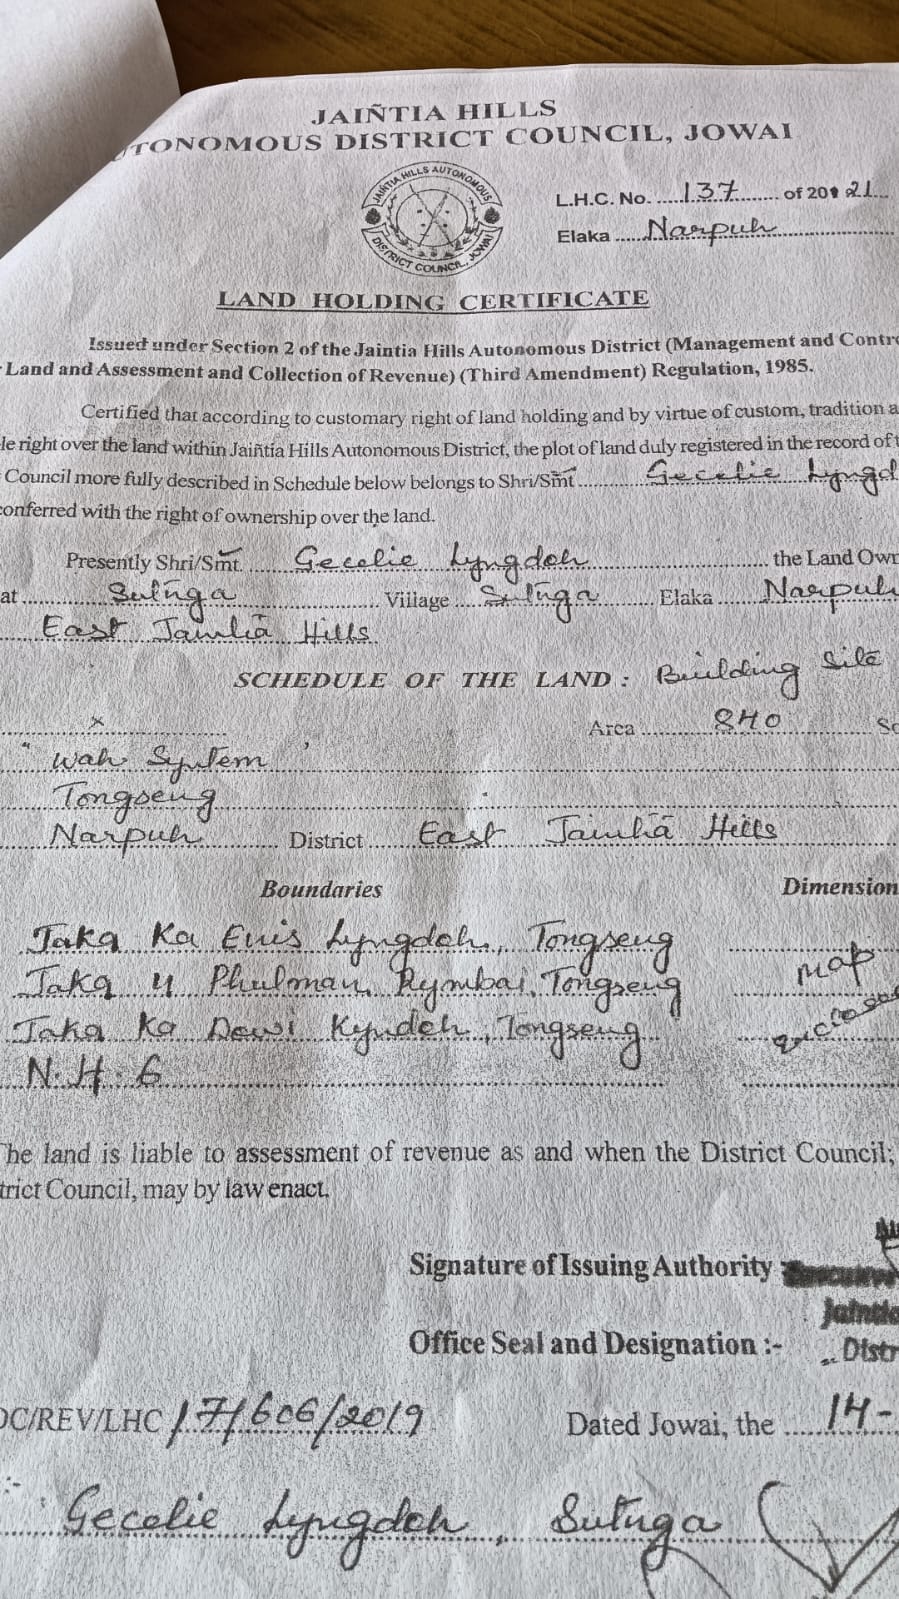 JAIÑTIA HILLS
UTONOMOUS DISTRICT COUNCIL, JOWAI
JAIÑTIA HILLS AUTONOMOUS
DISTRICT COUNCIL, JOWAI
L.H.C. No. 137 of 20 21
Elaka Narpuh
LAND HOLDING CERTIFICATE
Issued under Section 2 of the Jaintia Hills Autonomous District (Management and Contro
Land and Assessment and Collection of Revenue) (Third Amendment) Regulation, 1985.
Certified that according to customary right of land holding and by virtue of custom, tradition a
le right over the land within Jaiñtia Hills Autonomous District, the plot of land duly registered in the record of t
Council more fully described in Schedule below belongs to Shri/Smt Gecelie Lyngd
conferred with the right of ownership over the land.
Presently Shri/Smt. Gecelie Lyngdoh the Land Own
at Sutnga Village Sutnga Elaka Narpuh
East Jaintia Hills
SCHEDULE OF THE LAND : Building Site
x Area 840 Sq
" Wah Syntem '
Tongseng
Narpuh District East Jaintia Hills
Boundaries Dimension
Jaka Ka Enis Lyngdoh, Tongseng
Jaka u Phulman Rymbai, Tongseng map
Jaka Ka Dawi Kyndeh, Tongseng enclosed
N.H.6
The land is liable to assessment of revenue as and when the District Council;
trict Council, may by law enact.
Signature of Issuing Authority :
Jaintia
Office Seal and Designation :- Distr
DC/REV/LHC/17/606/2019 Dated Jowai, the 14-
:- Gecelie Lyngdoh, Sutnga